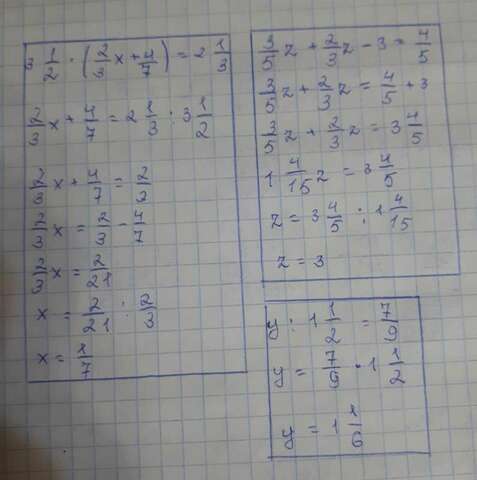 3 1/2 · (2/3 x + 4/7) = 2 1/3
2/3 x + 4/7 = 2 1/3 : 3 1/2
2/3 x + 4/7 = 2/3
2/3 x = 2/3 - 4/7
2/3 x = 2/21
x = 2/21 : 2/3
x = 1/7
3/5 z + 2/3 z - 3 = 4/5
3/5 z + 2/3 z = 4/5 + 3
3/5 z + 2/3 z = 3 4/5
1 4/15 z = 3 4/5
z = 3 4/5 : 1 4/15
z = 3
y : 1 1/2 = 7/9
y = 7/9 · 1 1/2
y = 1 1/6